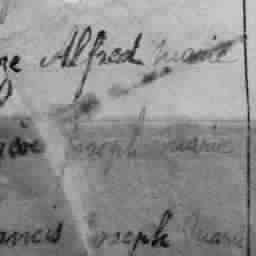 ge Alfred Marie
Joseph Marie
ancis Joseph Marie